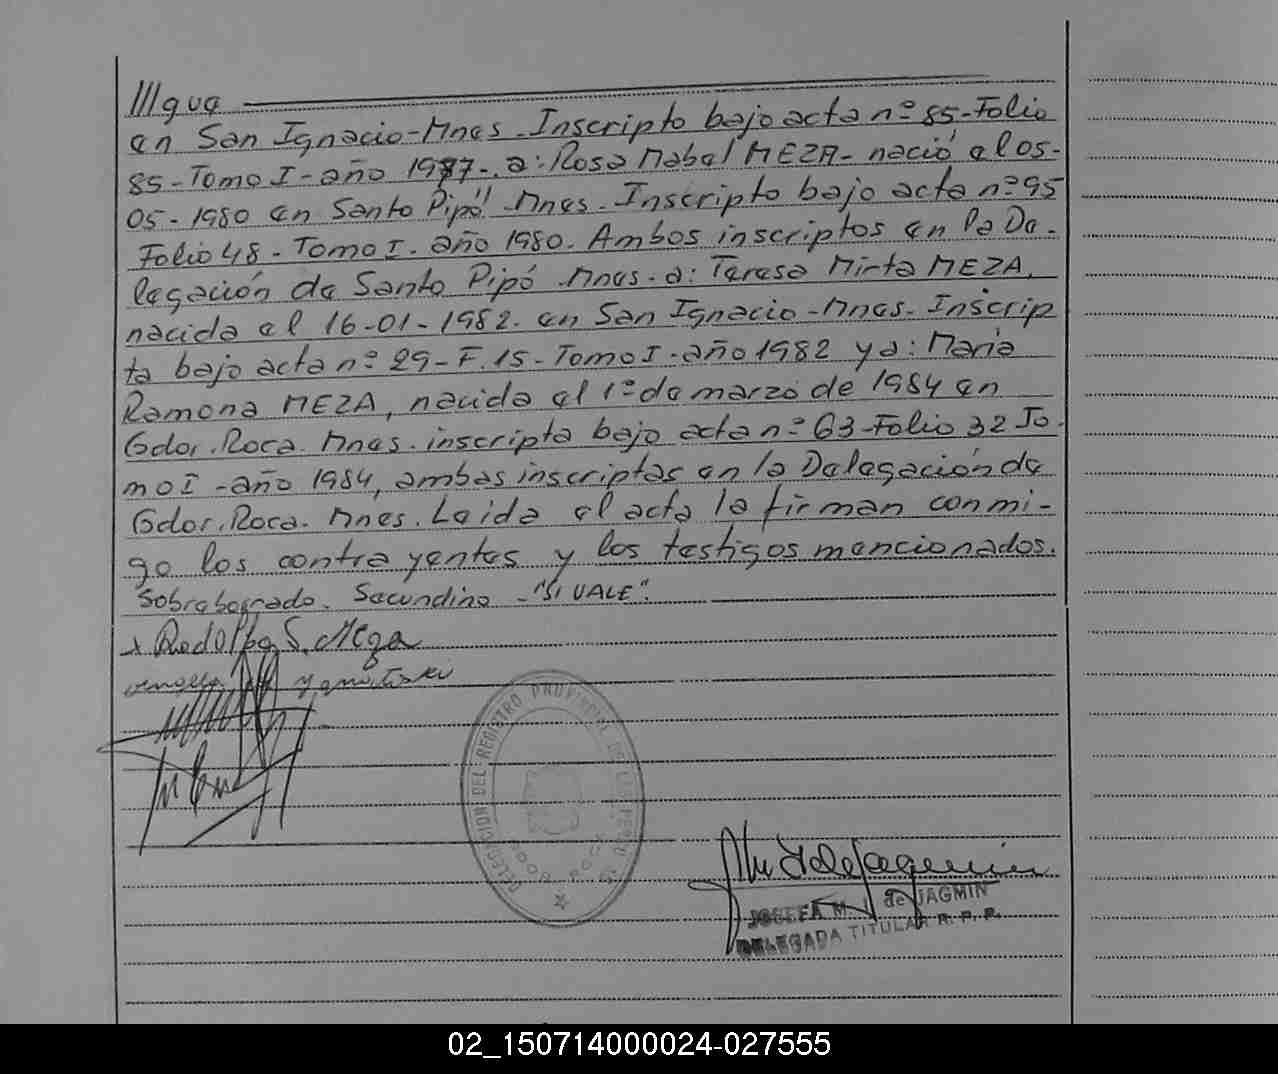 ///que
en San Ignacio-Mnes. Inscripto bajo acta nº 85-Folio
85-Tomo I-año 1977-. a: Rosa Mabel MEZA- nació el 05-
05-1980 en Santo Pipó Mnes. Inscripto bajo acta nº 95
Folio 48-Tomo I. año 1980. Ambos inscriptos en la De-
legación de Santo Pipó Mnes. a: Teresa Mirta MEZA,
nacida el 16-01-1982. en San Ignacio-Mnes. Inscrip
ta bajo acta nº 29-F.15-Tomo I-año 1982 y a: María
Ramona MEZA, nacida el 1º de marzo de 1984 en
Gdor. Roca. Mnes. inscripta bajo acta nº 63-Folio 32 To-
mo I-año 1984, ambas inscriptas en la Delegación de
Gdor. Roca. Mnes. Leida el acta la firman conmi-
go los contrayentes y los testigos mencionados.
Sobreborrado. Secundino-"SI VALE".
x Rodolfo S. Meza
DELEGACION DEL REGISTRO PROVINCIAL DE LAS PERSONAS
ROCA
JOSEFA M. de JAGMIN
DELEGADA TITULAR R. P. P.
02_150714000024-027555